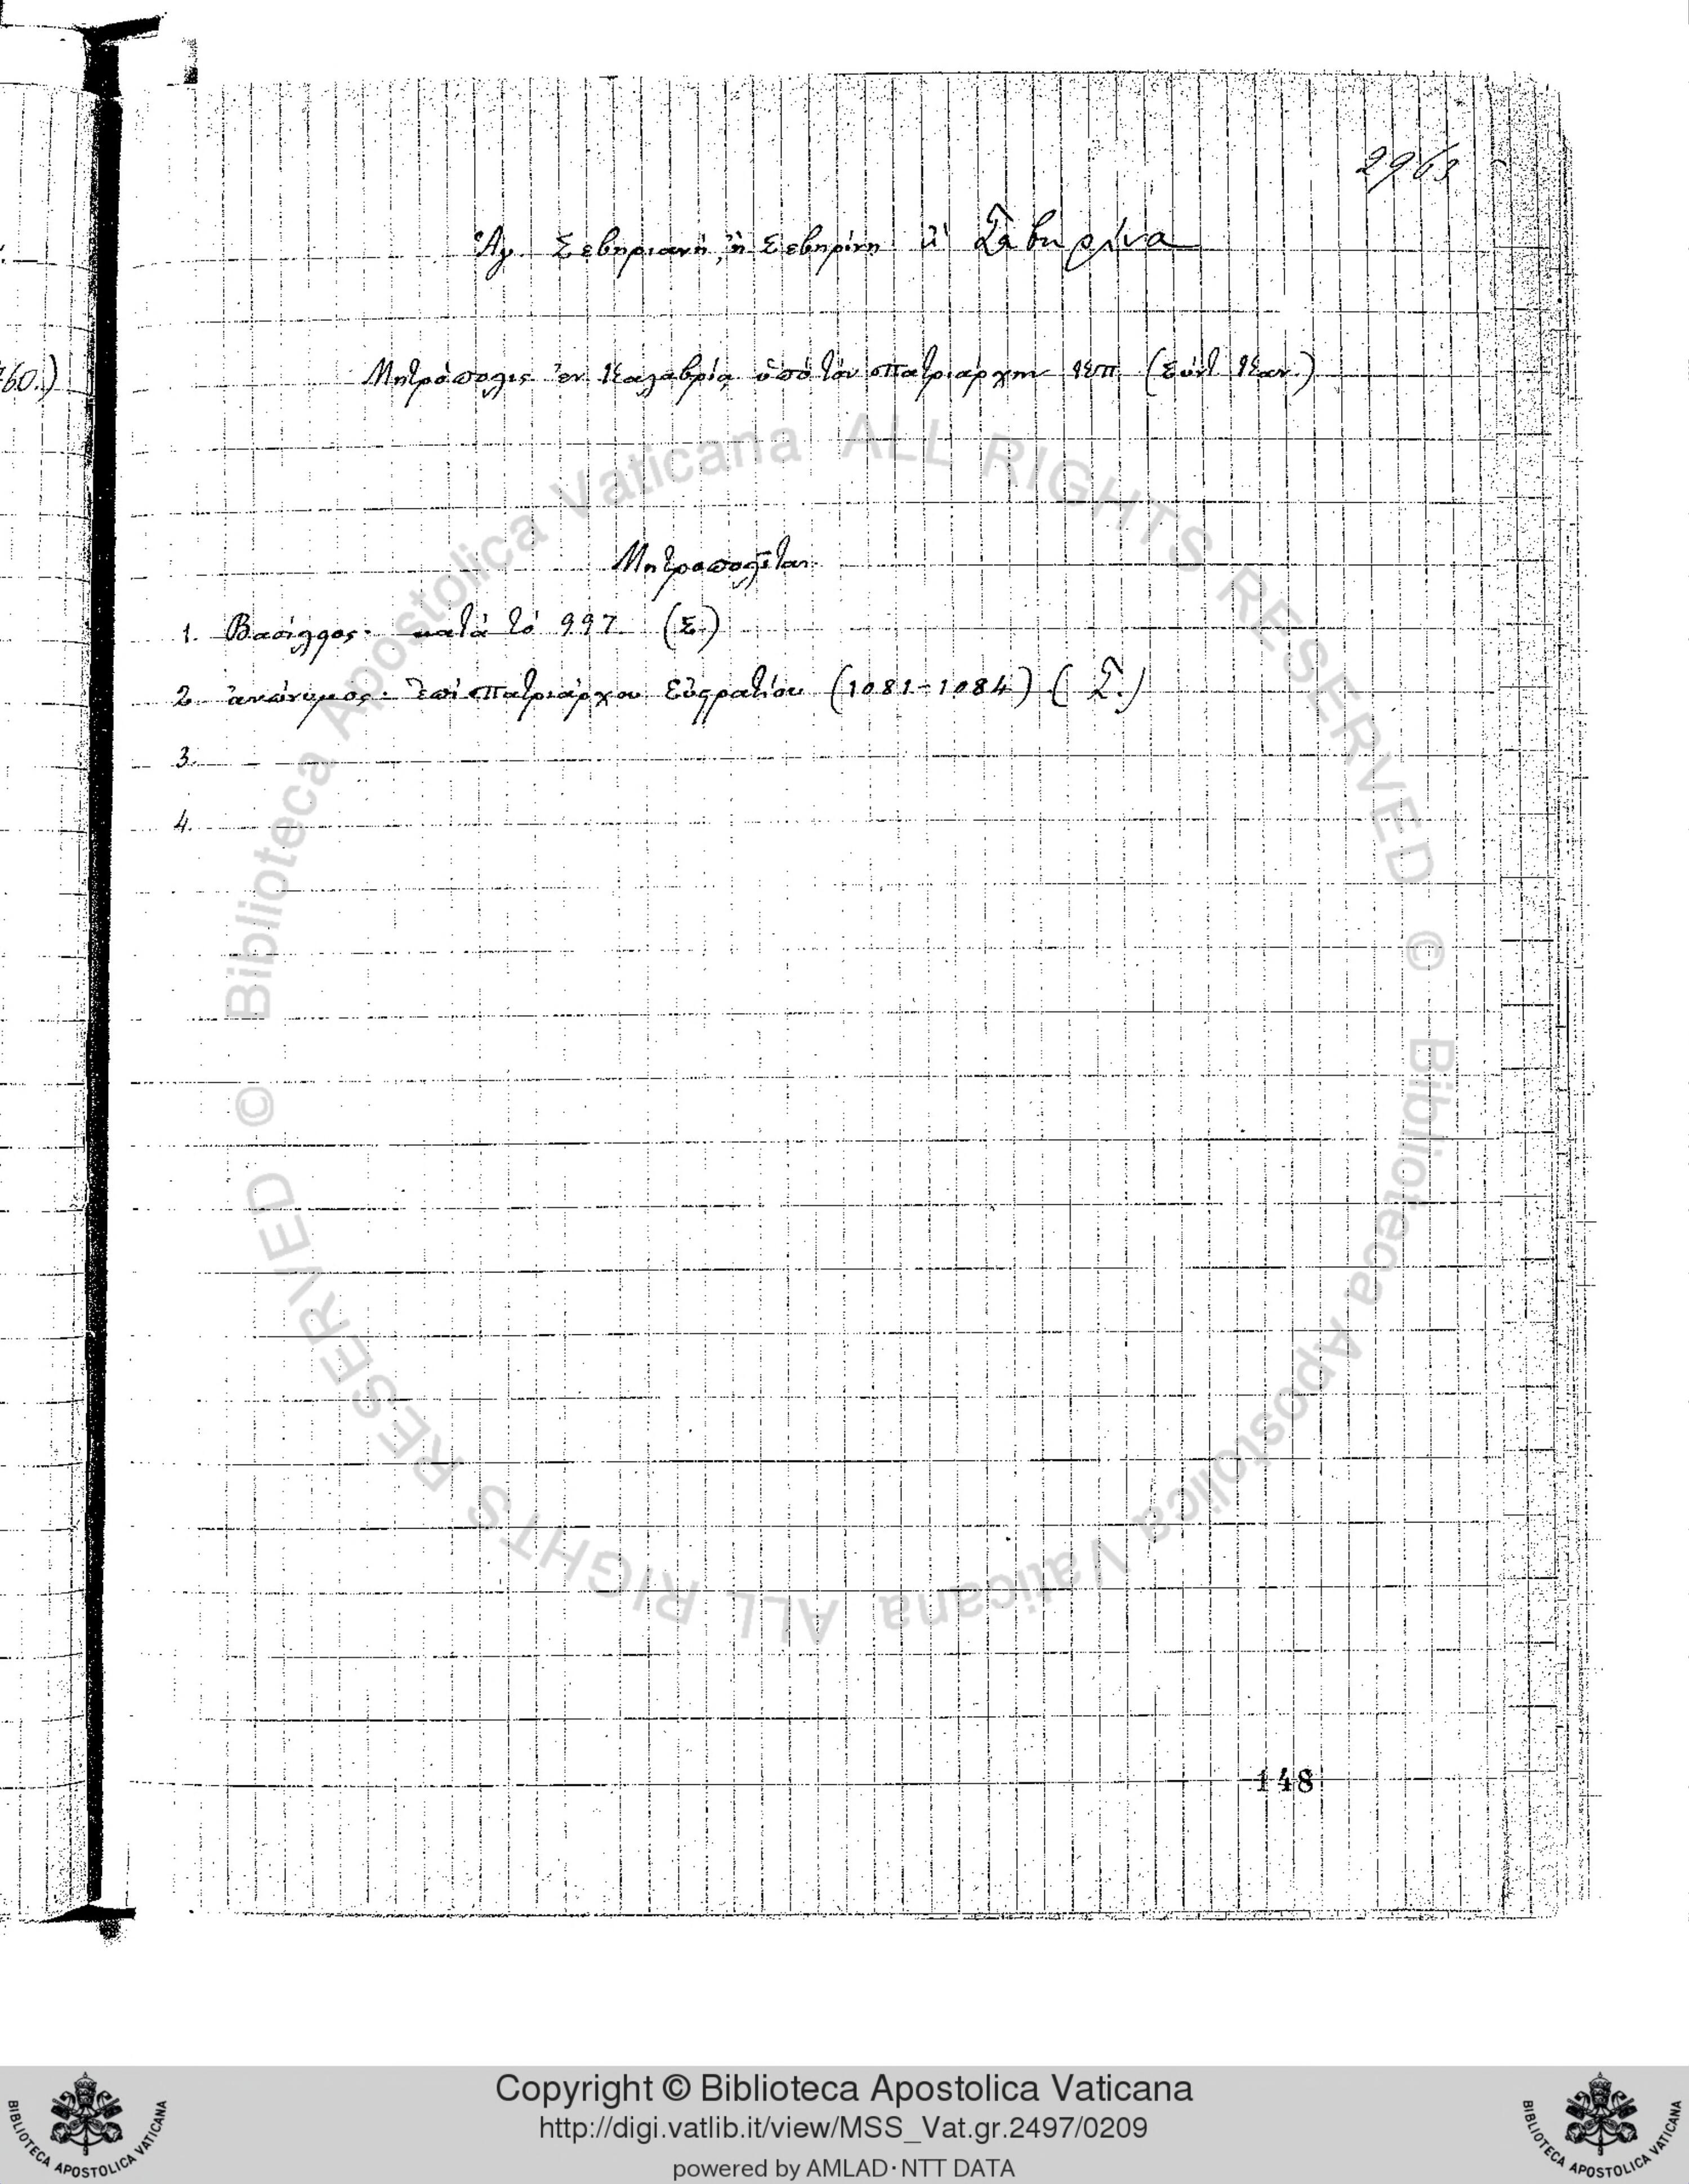 2963
Ἁγ. Σεβηριανή, ἢ Σεβηρίνη ἢ Σαβηρίνα
60.)
Μητρόπολις ἐν Καλαβρίᾳ ὑπὸ τὸν πατριάρχην Κπ (Σύντ Καν.)
Μητροπολῖται
1. Βασίλειος· κατὰ τὸ 997 (Σ.)
2. ἀνώνυμος· ἐπὶ πατριάρχου Εὐστρατίου (1081-1084) (Σ.)
3.
4.
148
© Biblioteca Apostolica Vaticana ALL RIGHTS RESERVED © Biblioteca Apostolica Vaticana ALL RIGHTS RESERVED
Copyright © Biblioteca Apostolica Vaticana
http://digi.vatlib.it/view/MSS_Vat.gr.2497/0209
powered by AMLAD·NTT DATA
BIBLIOTECA APOSTOLICA VATICANA
BIBLIOTECA APOSTOLICA VATICANA